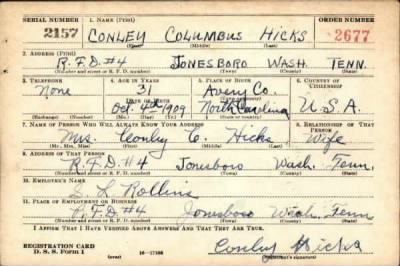 SERIAL NUMBER 1. NAME (Print) ORDER NUMBER
2157 CONLEY COLUMBUS HICKS 2677
(First) (Middle) (Last)
2. ADDRESS (Print)
R.F.D.#4 JONESBORO WASH. TENN.
(Number and street or R. F. D. number) (Town) (County) (State)
3. TELEPHONE 4. AGE IN YEARS 5. PLACE OF BIRTH 6. COUNTRY OF CITIZENSHIP
None 31 Avery Co.
DATE OF BIRTH
Oct 4th 1909 North Carolina U.S.A.
(Exchange) (Number) (Mo.) (Day) (Yr.) (State or country)
7. NAME OF PERSON WHO WILL ALWAYS KNOW YOUR ADDRESS 8. RELATIONSHIP OF THAT PERSON
Mrs. Conley C. Hicks Wife
(Mr., Mrs., Miss) (First) (Middle) (Last)
9. ADDRESS OF THAT PERSON
R.F.D. #4 Jonesboro Wash. Tenn.
(Number and street or R. F. D. number) (Town) (County) (State)
10. EMPLOYER'S NAME
L Rollins
11. PLACE OF EMPLOYMENT OR BUSINESS
R.F.D #4 Jonesboro Wash. Tenn
(Number and street or R. F. D. number) (Town) (County) (State)
I AFFIRM THAT I HAVE VERIFIED ABOVE ANSWERS AND THAT THEY ARE TRUE.
REGISTRATION CARD
D. S. S. FORM 1 (over) Conley Hicks